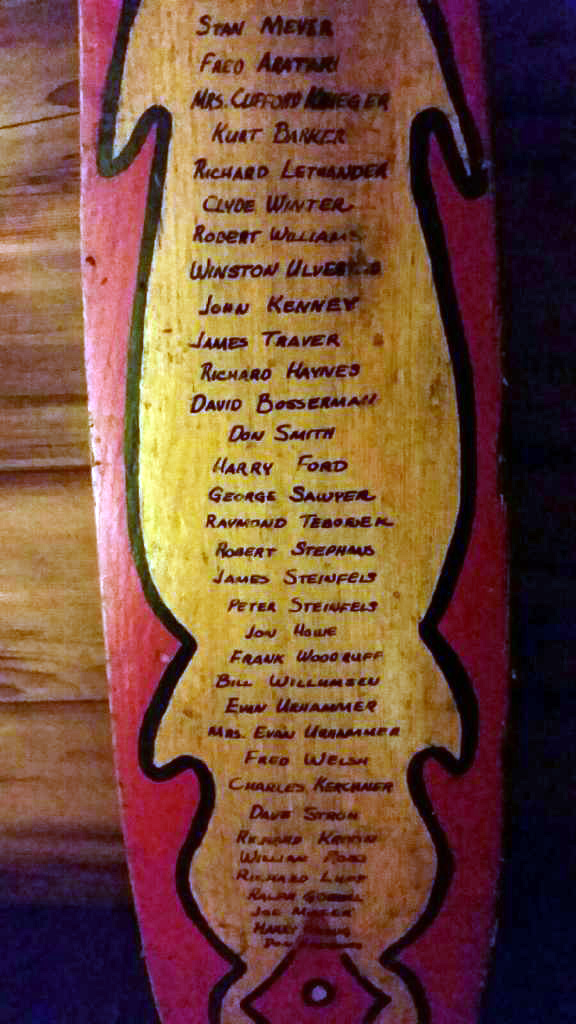 STAN MEYER
FRED ARATARI
MRS. CLIFFORD KRUEGER
KURT BARKER
RICHARD LETHANDER
CLYDE WINTER
ROBERT WILLIAMS
WINSTON
JOHN KENNEY
JAMES TRAVER
RICHARD HAYNES
DAVID BOSSERMAN
DON SMITH
HARRY FORD
GEORGE SAWYER
RAYMOND TEBOREK
ROBERT STEPHANS
JAMES STEINFELS
PETER STEINFELS
JON HOWE
FRANK WOODRUFF
BILL WILLUMSEN
EVAN URHAMMER
MRS. EVAN URHAMMER
FRED WELSH
CHARLES KERCHNER
DAVE STROH
RICHARD
WILLIAM
RICHARD
RALPH
JOE
HARRY
DON